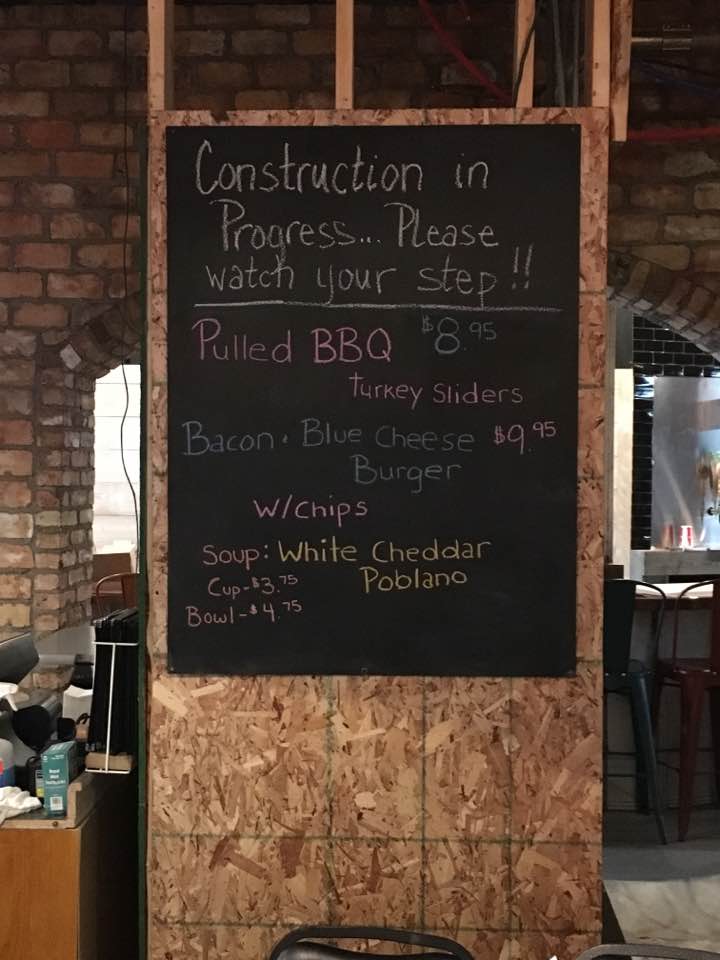 Construction in
Progress... Please
watch your step!!
Pulled BBQ $8.95
Turkey Sliders
Bacon · Blue Cheese $9.95
Burger
w/Chips
Soup: White Cheddar
Cup-$3.75 Poblano
Bowl-$4.75